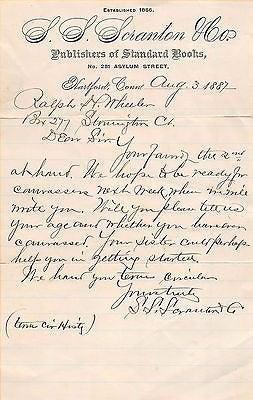 ESTABLISHED 1866.
S. S. Scranton & Co.
Publishers of Standard Books,
No. 281 ASYLUM STREET,
Hartford, Conn Aug 3 1887
Ralph H. Wheeler
Bx 277 Stonington Ct.
Dear Sir
Your favor of the 2nd
at hand. We hope to be ready for
canvassers next week when we will
write you. Will you please tell us
your age and whether you have ever
canvassed. Your Sister could perhaps
help you in getting started.
We hand you terms circular
Yours truly
S. S. Scranton & Co
(terms Cir Histy)